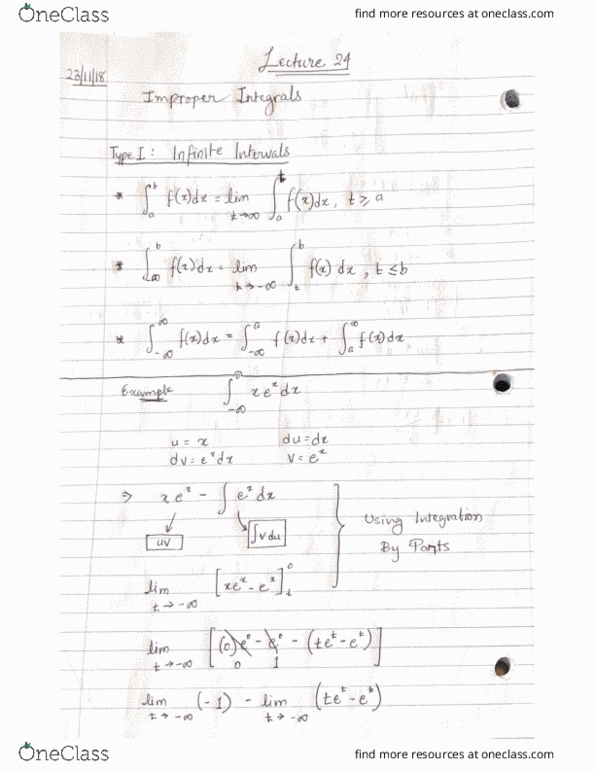 OneClass find more resources at oneclass.com
Lecture 24
23/11/18
Improper Integrals
Type I: Infinite Intervals
* ∫_a^b f(x)dx = lim_{t→∞} ∫_a^t f(x)dx, t ≥ a
* ∫_{-∞}^b f(x)dx = lim_{t→-∞} ∫_t^b f(x) dx, t ≤ b
* ∫_{-∞}^∞ f(x)dx = ∫_{-∞}^a f(x)dx + ∫_a^∞ f(x)dx
Example ∫_{-∞}^0 x e^x dx
u = x du = dx
dv = e^x dx v = e^x
⇒ x e^x - ∫ e^x dx
uv ∫v du
Using Integration
By Parts
lim_{t→-∞} [xe^x - e^x]_t^0
lim_{t→-∞} [(0)e^0 - e^0 - (te^t - e^t)]
0 1
lim_{t→-∞} (-1) - lim_{t→-∞} (te^t - e^t)
OneClass find more resources at oneclass.com